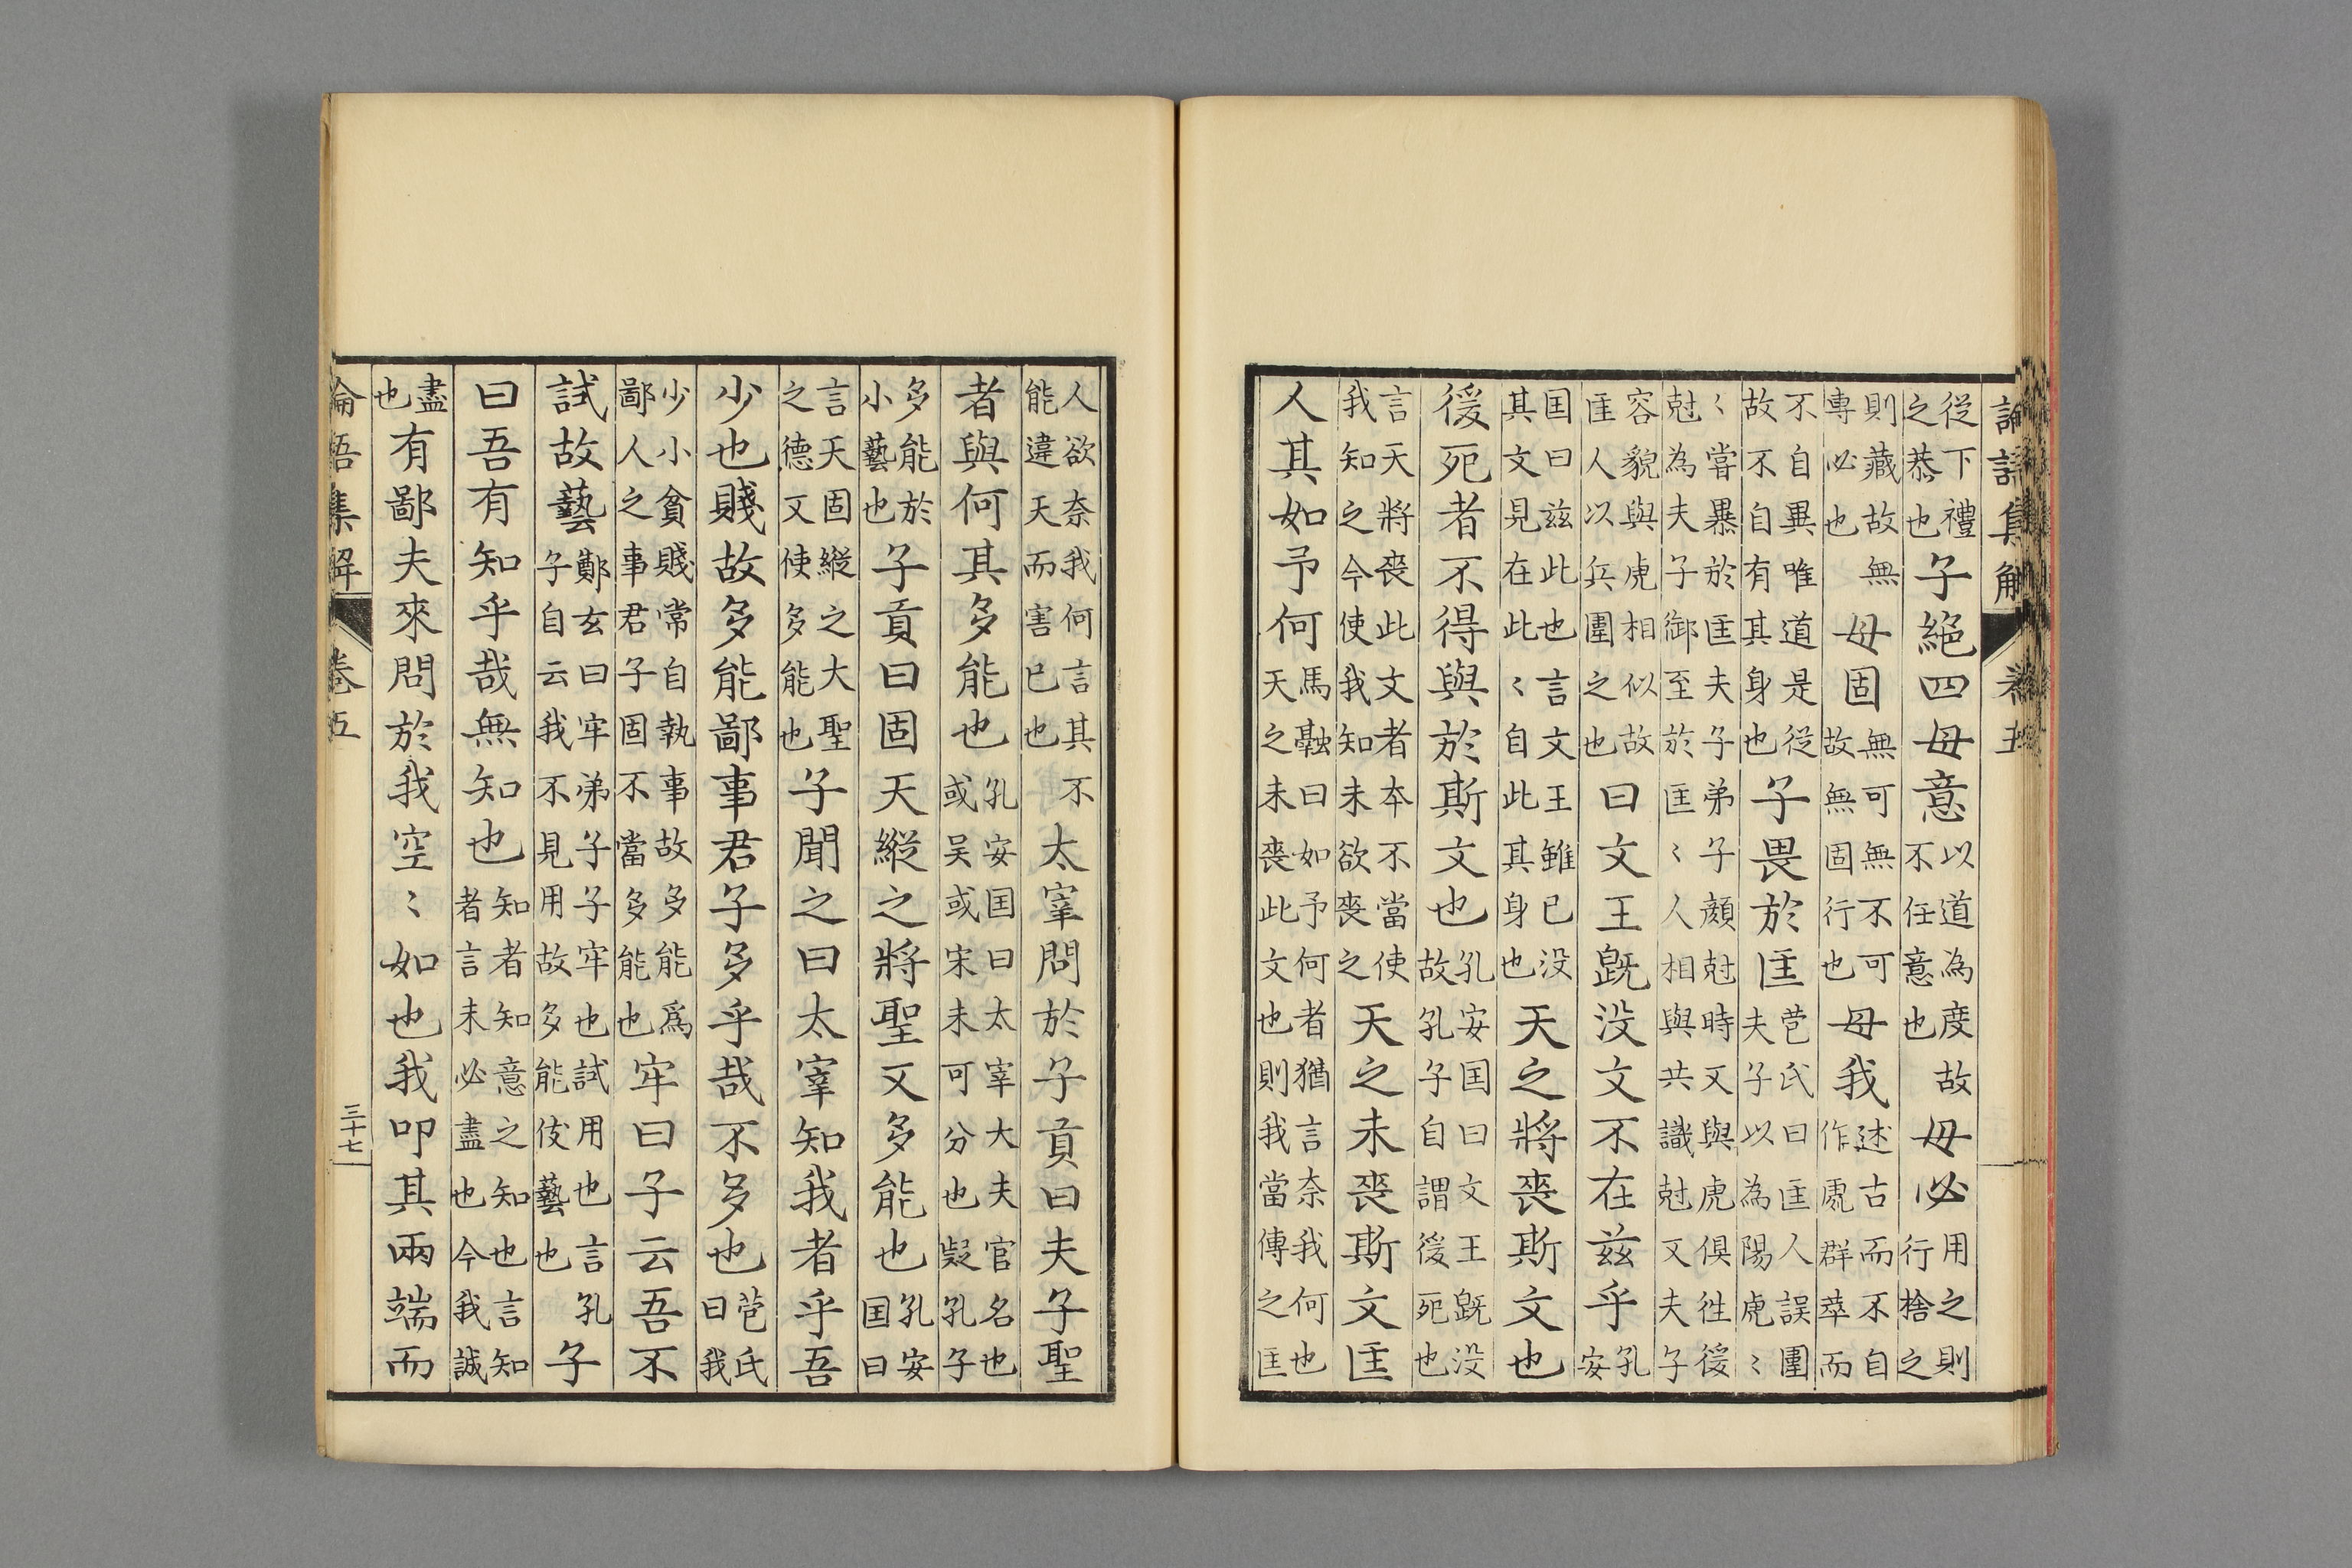 論語集解 卷五
從下禮之恭也子絕四毋意以道為度故不任意也毋必用之則行捨之
則藏故無專必也毋固無可無不可故無固行也毋我述古而不自作處群萃而
不自異唯道是從故不自有其身也子畏於匡苞氏曰匡人誤圍夫子以為陽虎〻
〻嘗暴於匡夫子弟子顔尅時又與虎俱徃後尅為夫子御至於匡〻人相與共識尅又夫子
容貌與虎相似故匡人以兵圍之也曰文王既没文不在兹乎孔安
囯曰兹此也言文王雖已没其文見在此〻自此其身也天之將喪斯文也
後死者不得與於斯文也孔安囯曰文王既没故孔子自謂後死也
言天將喪此文者本不當使我知之今使我知未欲喪之天之未喪斯文匡
人其如予何馬融曰如予何者猶言奈我何也天之未喪此文也則我當傳之匡
人欲奈我何言其不能違天而害已也太宰問於子貢曰夫子聖
者與何其多能也孔安囯曰太宰大夫官名也或吴或宋未可分也疑孔子
多能於小藝也子貢曰固天縱之將聖又多能也孔安囯曰
言天固縱之大聖之德又使多能也子聞之曰太宰知我者乎吾
少也賤故多能鄙事君子多乎哉不多也苞氏曰我
少小貧賤常自執事故多能爲鄙人之事君子固不當多能也牢曰子云吾不
試故藝鄭玄曰牢弟子子牢也試用也言孔子自云我不見用故多能伎藝也子
曰吾有知乎哉無知也知者知意之知也言知者言未必盡也今我誠
盡也有鄙夫來問於我空〻如也我叩其兩端而
論語集解 卷五 三十七